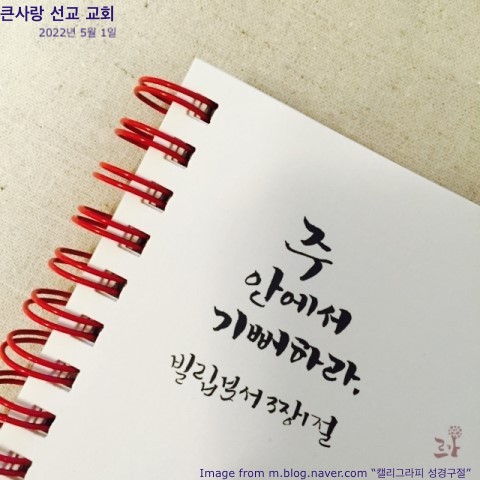 큰사랑 선교 교회
2022년 5월 1일
주
안에서
기뻐하라.
빌립보서 3장1절
Image from m.blog.naver.com “캘리그라피 성경구절”